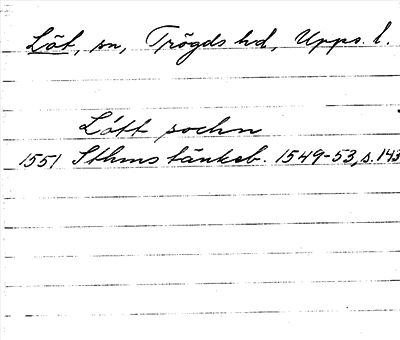 Löt, sn, Trögds hd, Upps. l.
Lött sochn
1551 Sthms tänkeb. 1549-53, s. 143